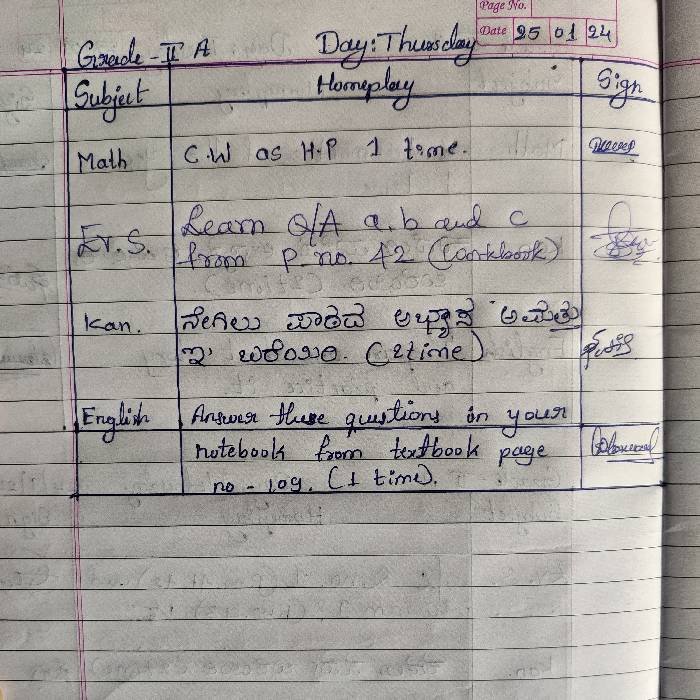 Page No.
Date 25 01 24
Grade - II A Day: Thursday
Subject Homeplay Sign
Math C.W as H.P 1 time.
Ev.S. Learn Q/A a, b and c
from P. no. 42 (Workbook)
Kan. ನೇಗಿಲು ಪಾಠದ ಅಭ್ಯಾಸ
ಬರೆಯಿರಿ. (2time)
English Answer these questions in your
notebook from textbook page
no - 109. (1 time).